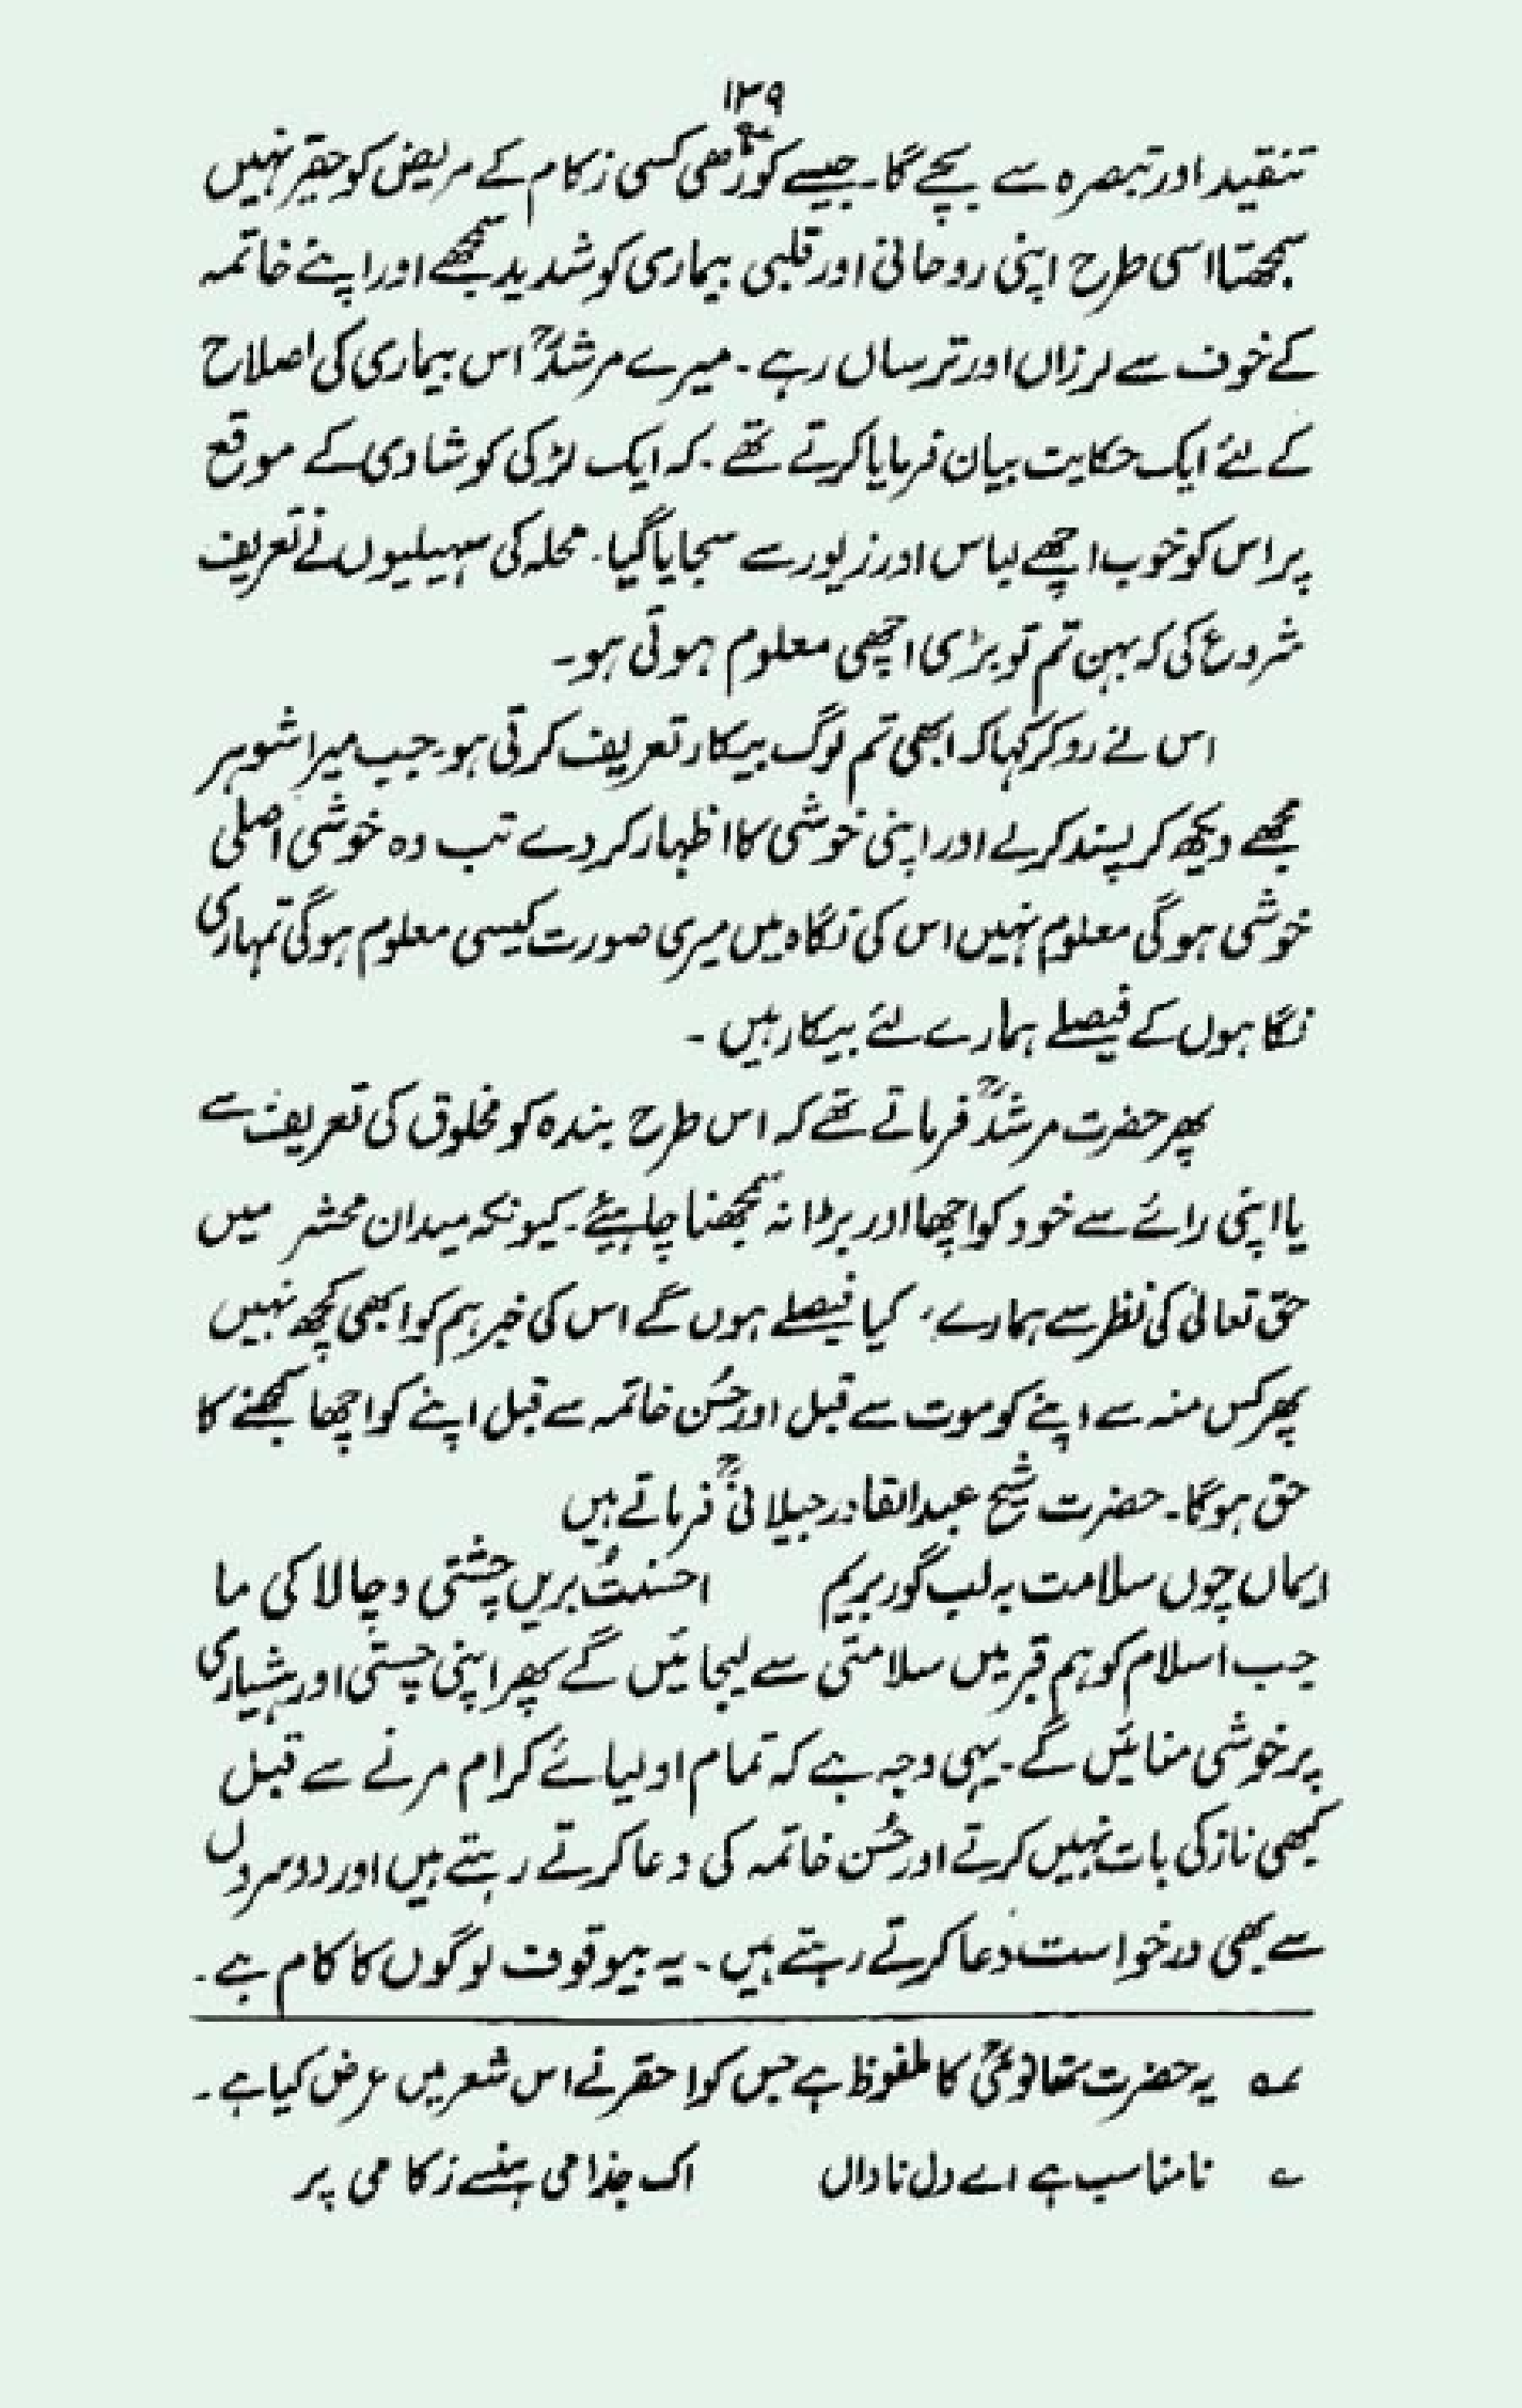 ۱۳۹
تنقید اور تبصرہ سے بچے گا۔ جیسے کوڑھی کسی زکام کے مریض کو حقیر نہیں
سمجھتا اسی طرح اپنی روحانی اور قلبی بیماری کو شدید سمجھے اور اپنے خاتمہ
کے خوف سے لرزاں اور ترساں رہے۔ میرے مرشدؒ اس بیماری کی اصلاح
کے لئے ایک حکایت بیان فرمایا کرتے تھے۔ کہ ایک لڑکی کو شادی کے موقع
پر اس کو خوب اچھے لباس اور زیور سے سجایا گیا۔ محلہ کی سہیلیوں نے تعریف
شروع کی کہ بہن تم تو بڑی اچھی معلوم ہوتی ہو۔
اس نے رو کر کہا کہ ابھی تم لوگ بیکار تعریف کرتی ہو۔ جب میرا شوہر
مجھے دیکھ کر پسند کرلے اور اپنی خوشی کا اظہار کر دے تب وہ خوشی اصلی
خوشی ہوگی معلوم نہیں اس کی نگاہ میں میری صورت کیسی معلوم ہوگی تمہاری
نگاہوں کے فیصلے ہمارے لئے بیکار ہیں۔
پھر حضرت مرشدؒ فرماتے تھے کہ اس طرح بندہ کو مخلوق کی تعریف سے
یا اپنی رائے سے خود کو اچھا اور بڑا نہ سمجھنا چاہیئے۔ کیونکہ میدان محشر میں
حق تعالیٰ کی نظر سے ہمارے، کیا فیصلے ہوں گے اس کی خبر ہم کو ابھی کچھ نہیں
پھر کس منہ سے اپنے کو موت سے قبل اور حُسن خاتمہ سے قبل اپنے کو اچھا سمجھنے کا
حق ہوگا۔ حضرت شیخ عبدالقادر جیلانیؒ فرماتے ہیں
ایماں چوں سلامت بہ لب گور بریم احسنتُ بریں چشتی و چالاکی ما
جب اسلام کو ہم قبر میں سلامتی سے لیجائیں گے پھر اپنی چستی اور ہشیاری
پر خوشی منائیں گے۔ یہی وجہ ہے کہ تمام اولیائے کرام مرنے سے قبل
کبھی ناز کی بات نہیں کرتے اور حُسن خاتمہ کی دعا کرتے رہتے ہیں اور دوسروں
سے بھی درخواست دعا کرتے رہتے ہیں۔ یہ بیوقوف لوگوں کا کام ہے۔
عہ یہ حضرت تھانویؒ کا ملفوظ ہے جس کو احقر نے اس شعر میں عرض کیا ہے۔
؎ نامناسب ہے اے دل ناداں اک جذامی ہنسے زکامی پر